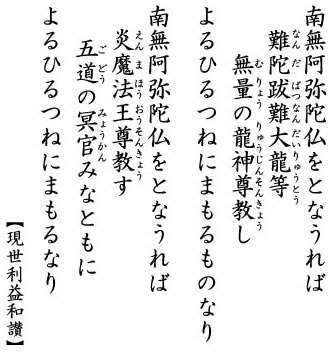 南無阿弥陀仏をとなうれば
難陀跋難大龍等
無量の龍神尊教し
よるひるつねにまもるものなり
南無阿弥陀仏をとなうれば
炎魔法王尊教す
五道の冥官みなともに
よるひるつねにまもるなり
【現世利益和讃】